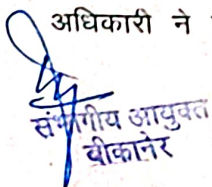 अधिकारी ने
संभागीय आयुक्त
बीकानेर